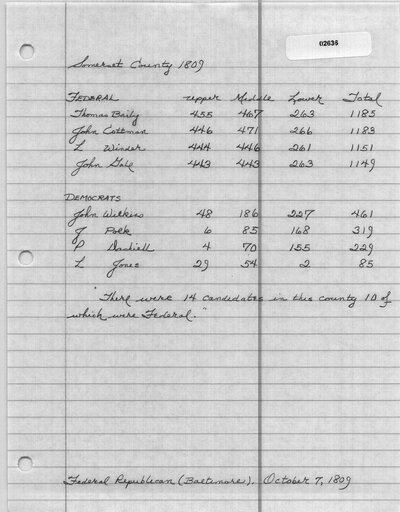 02636
Somerset County 1809
FEDERAL Upper Middle Lower Total
Thomas Baily 455 467 263 1185
John Cottman 446 471 266 1183
L Winder 444 446 261 1151
John Gale 443 443 263 1149
DEMOCRATS
John Wilkins 48 186 227 461
J Polk 6 85 168 319
P Dashiell 4 70 155 229
L Jones 29 54 2 85
"There were 14 candidates in this county 10 of
which were Federal."
Federal Republican (Baltimore). October 7, 1809